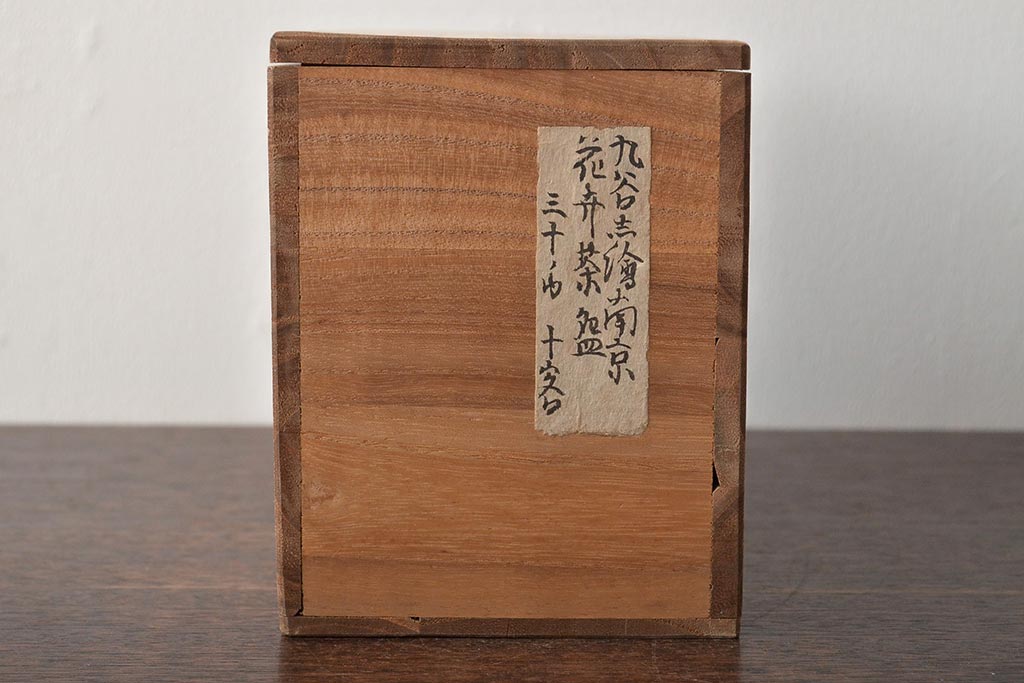 九谷赤繪南京
花弁茶盌
三十ノ内 十客